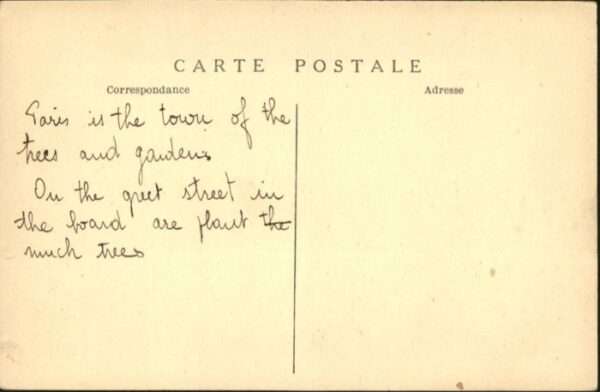 CARTE POSTALE
Correspondance
Adresse
Paris is the town of the
trees and gardens
On the greet street in
the board are plant the
much trees